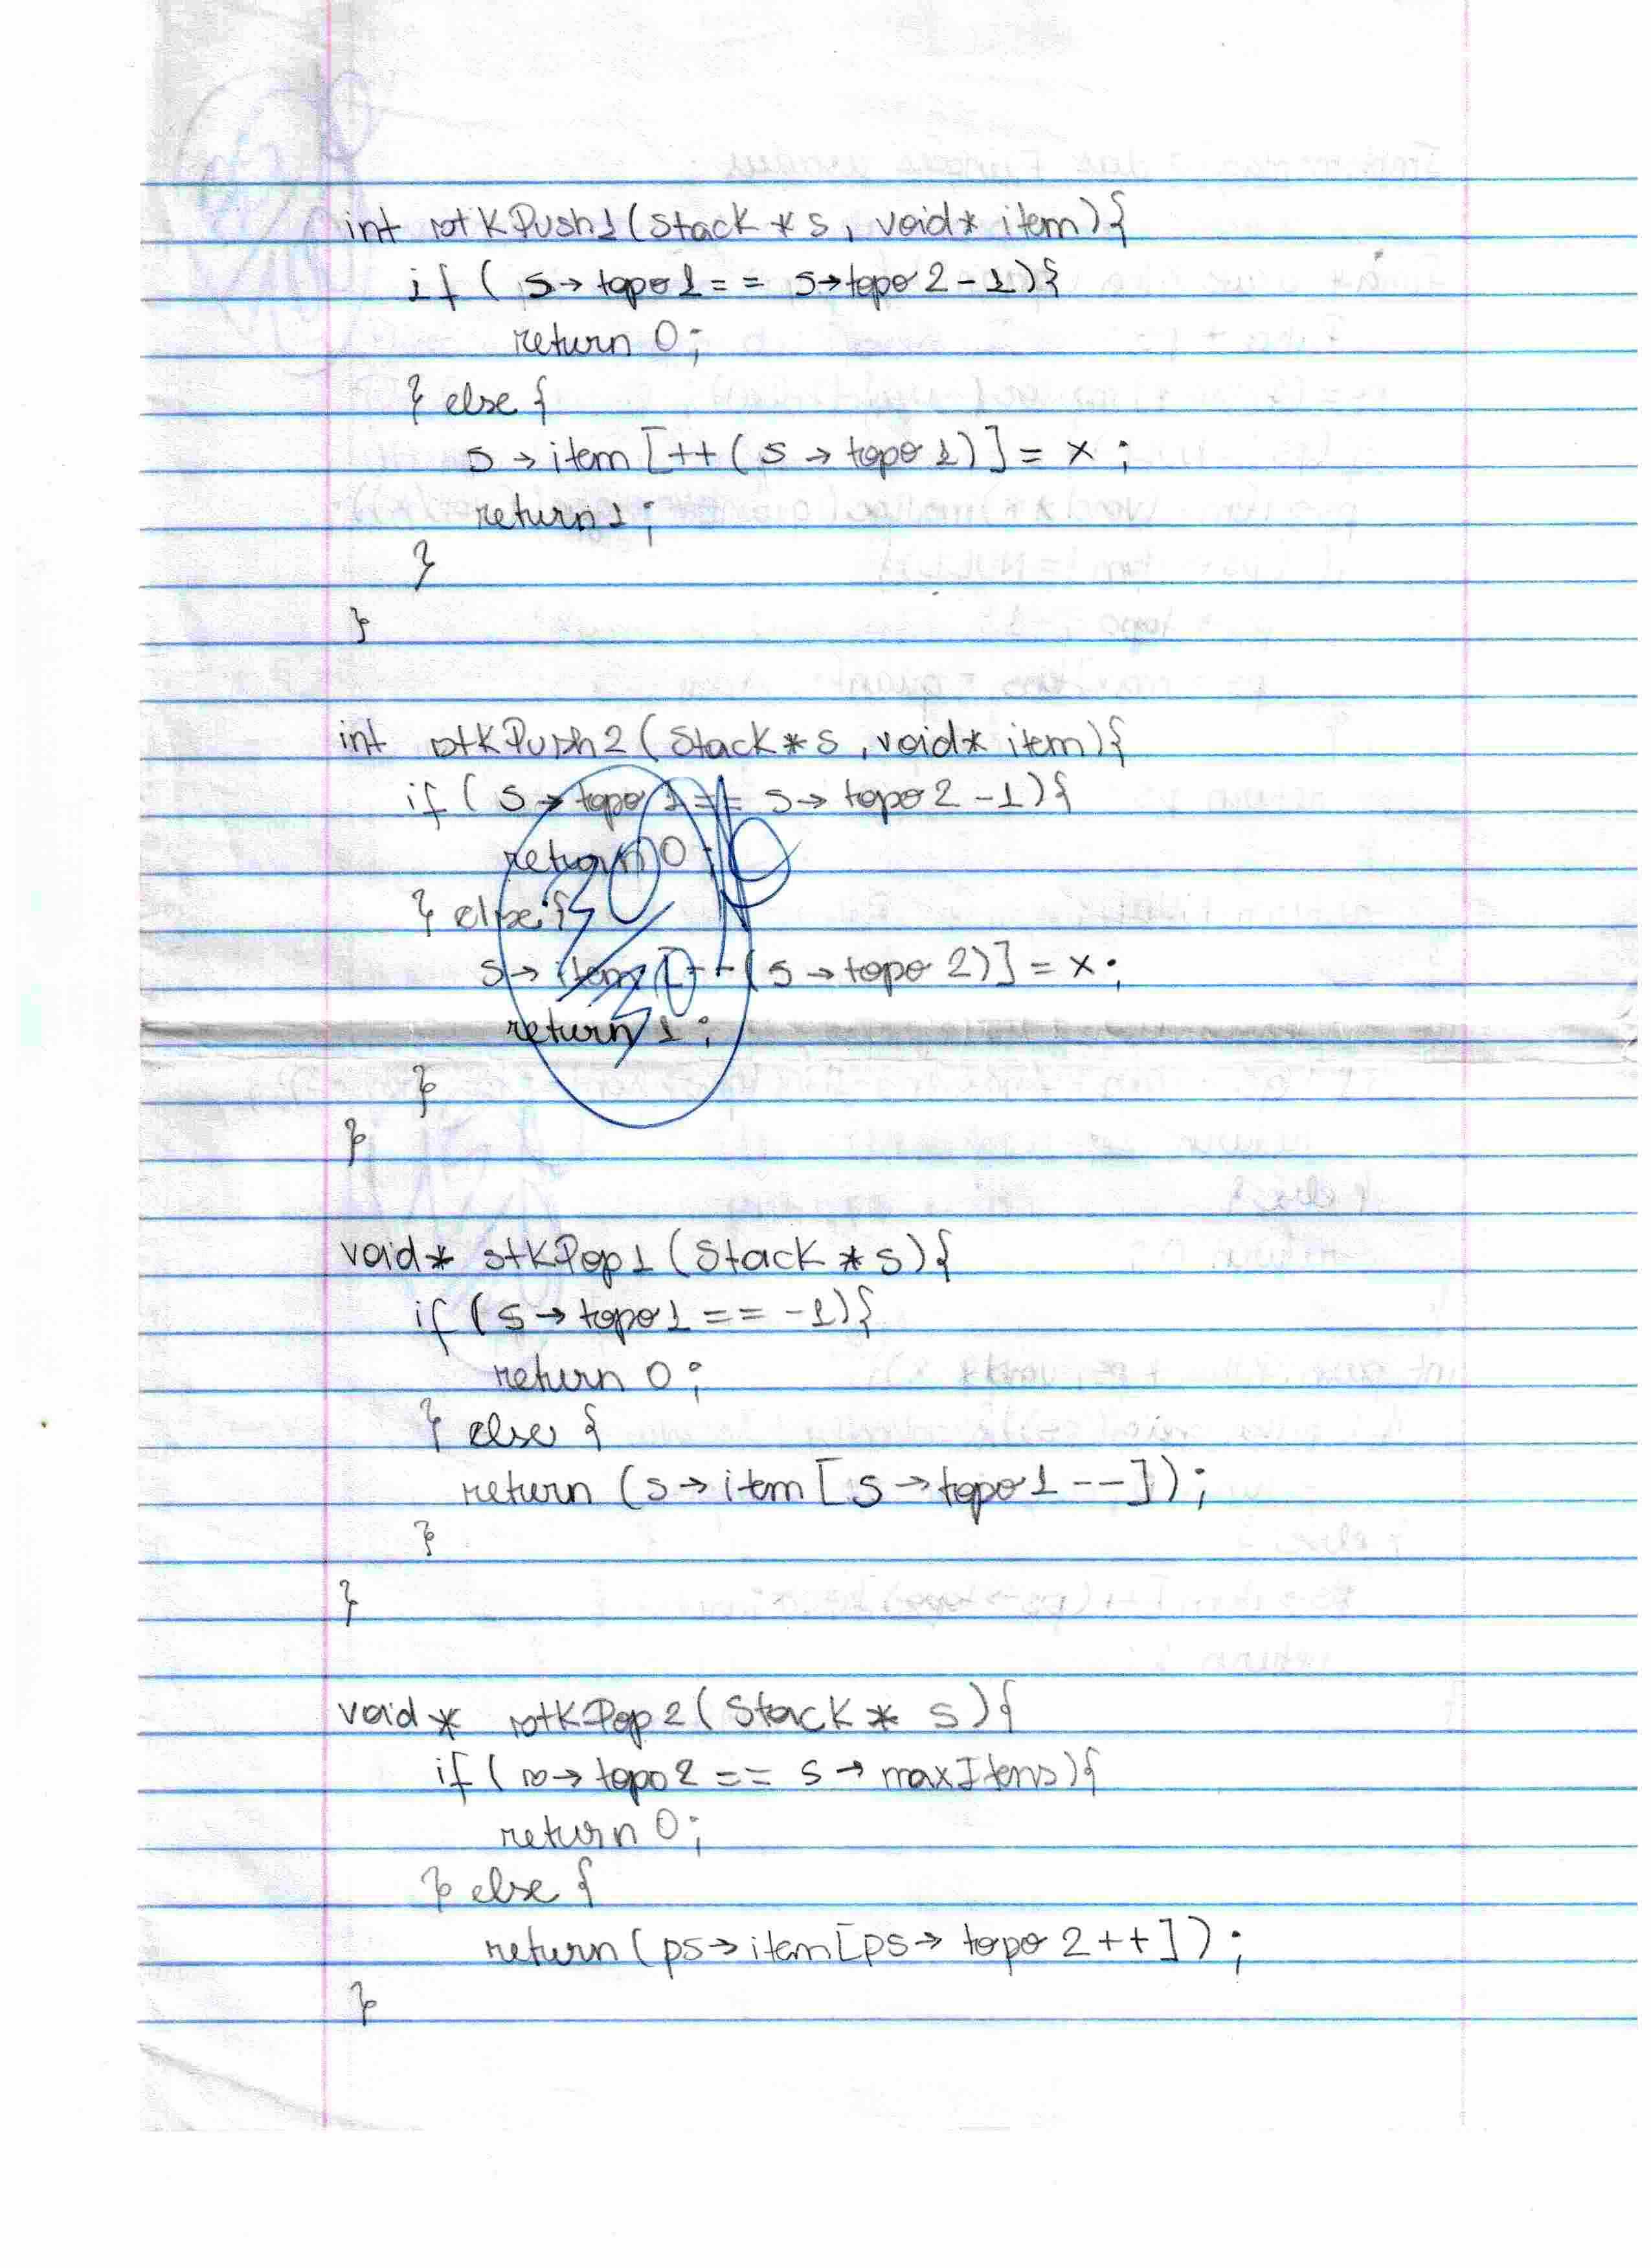 int stkPush1(Stack *s, void* item){
if ( s→topo1 == s→topo2-1){
return 0;
} else {
s→item[++(s→topo1)] = x;
return 1;
}
}
int stkPush2(Stack*s, void* item){
if ( s→topo1 == s→topo2-1){
return 0;
} else {
s→item[--(s→topo2)] = x;
return 1;
}
}
void* stkPop1(Stack *s){
if (s→topo1 == -1){
return 0;
} else {
return (s→item[s→topo1--]);
}
}
void* stkPop2(Stack* s){
if(s→topo2 == s→maxItens){
return 0;
} else {
return(ps→item[ps→topo2++]);
}